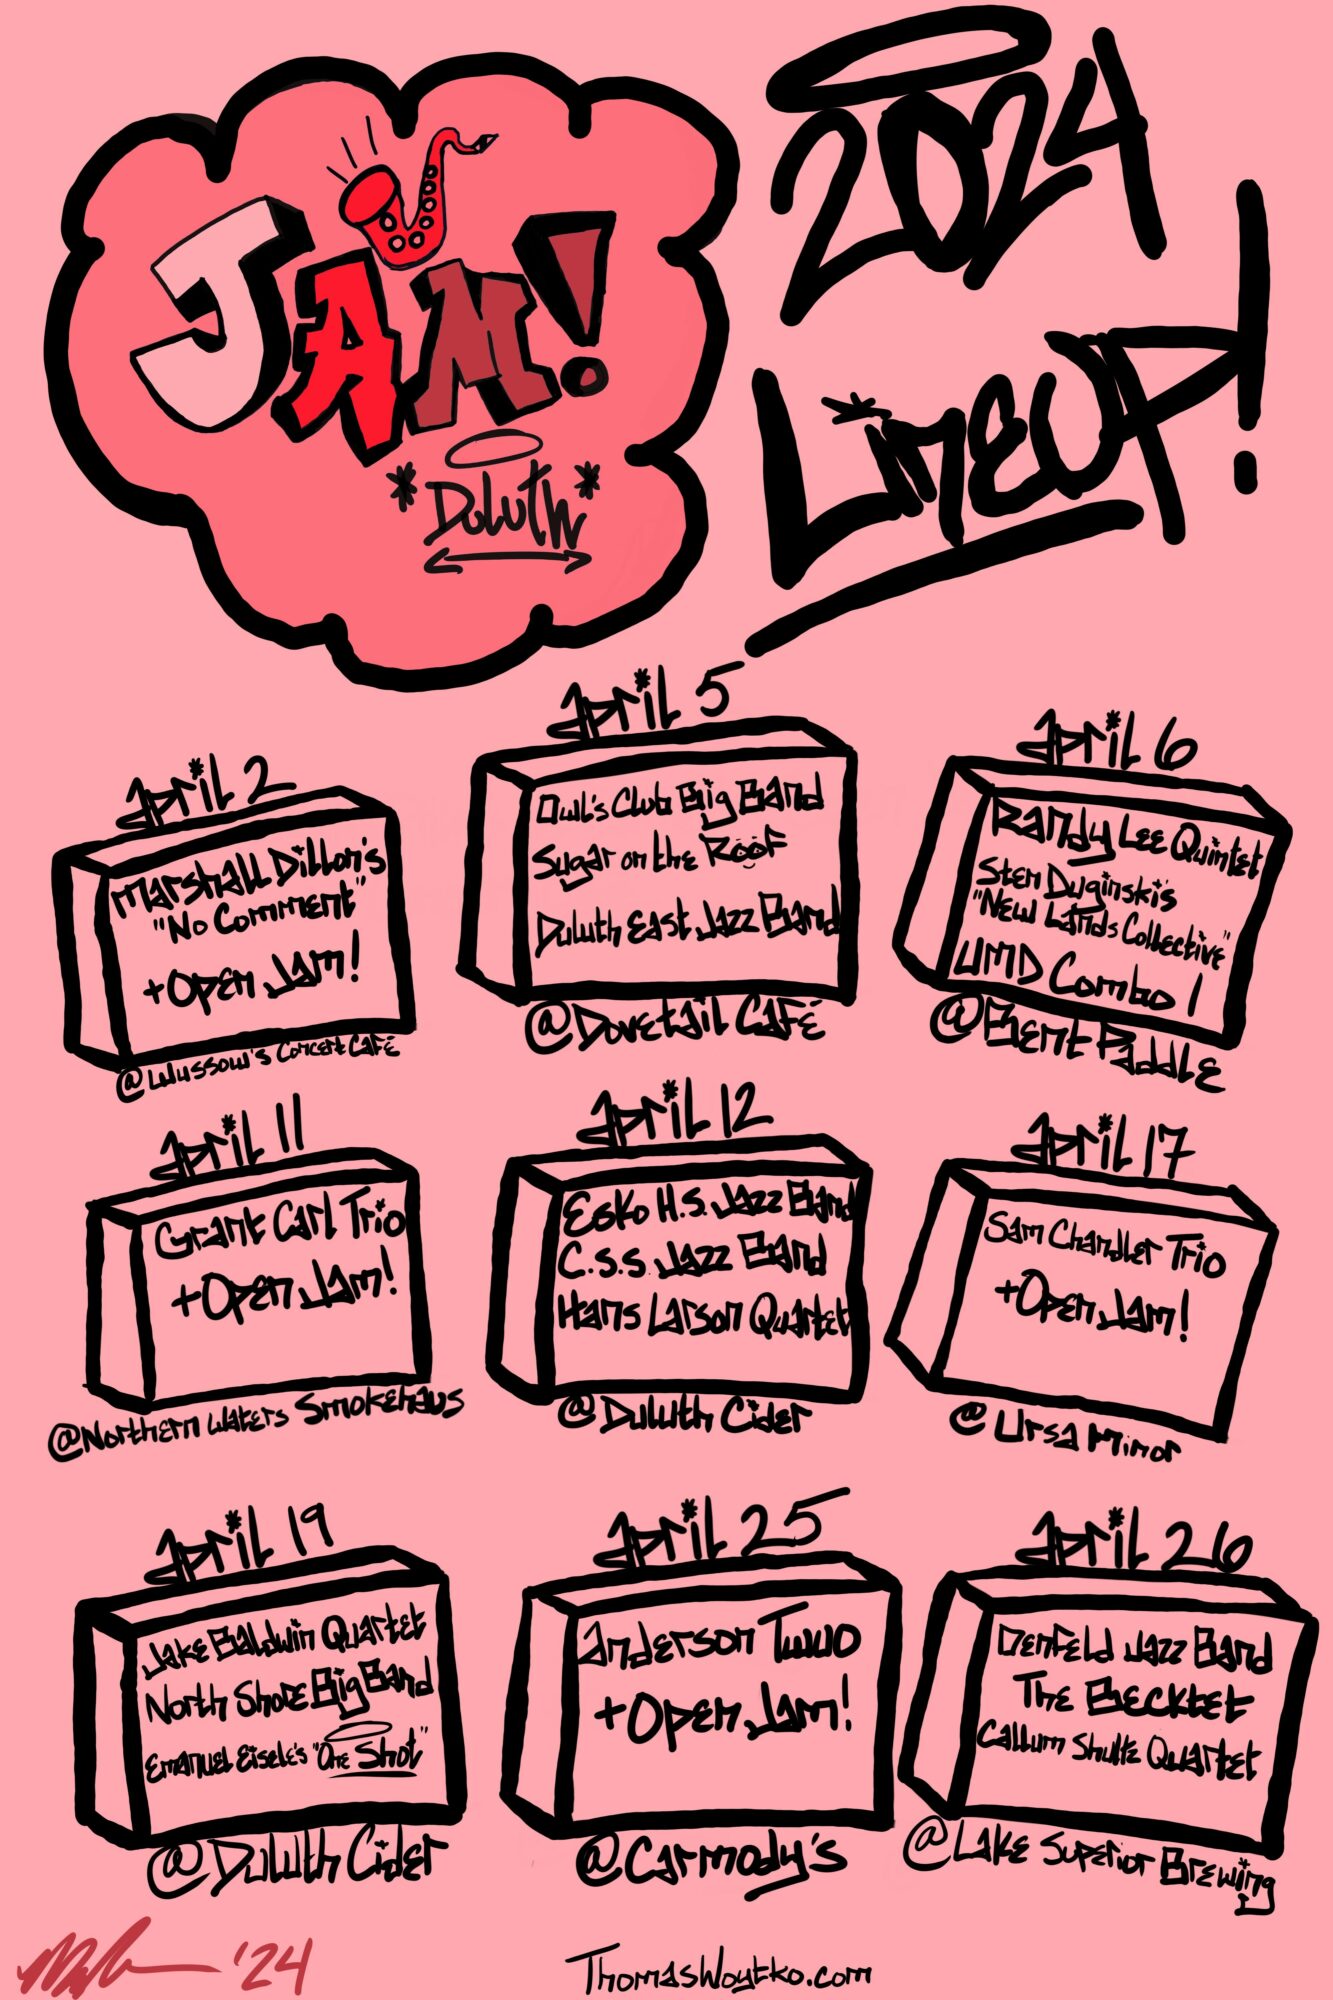 JAM!
*Duluth*
2024
Lineup!
April 2
Marshall Dillon's
"No Comment"
+Open Jam!
@Wussow's Concert Café
April 5
Owl's Club Big Band
Sugar on the Roof
Duluth East Jazz Band
@Dovetail Café
April 6
Randy Lee Quintet
Sten Duginski's
"New Lands Collective"
UMD Combo 1
@Bent Paddle
April 11
Grant Carl Trio
+Open Jam!
@Northern Waters Smokehaus
April 12
Esko H.S. Jazz Band
C.S.S. Jazz Band
Hans Larson Quartet
@Duluth Cider
April 17
Sam Chandler Trio
+Open Jam!
@Ursa Minor
April 19
Jake Baldwin Quartet
North Shore Big Band
Emanuel Eisele's "One Shot"
@Duluth Cider
April 25
Anderson Twuo
+Open Jam!
@Carmody's
April 26
Denfeld Jazz Band
The Becktet
Callum Shultz Quartet
@Lake Superior Brewing
'24
ThomasWoytko.com